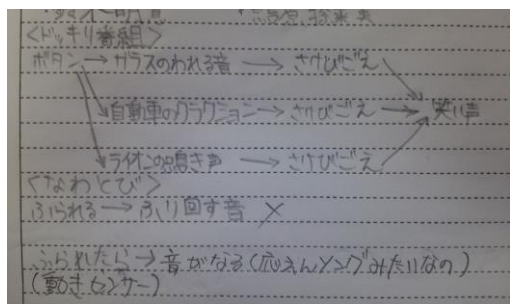 <ドッキリ番組>
ボタン→ガラスのわれる音→さけびごえ
自動車のクラクション→さけびごえ→笑い声
ライオンの鳴き声→さけびごえ
<なわとび>
ふられる→ふり回す音 ×
ふられたら→音がなる(応えんソングみたいなの)
(動きセンサー)